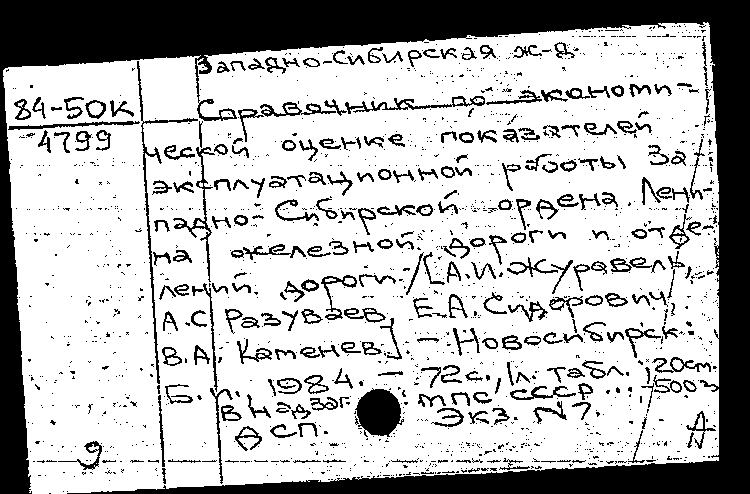 Западно-Сибирская ж-д.
84-50К
4799
Справочник по экономи-
ческой оценке показателей
эксплуатационной работы За-
падно-Сибирской ордена Лени-
на железной дороги и отде-
лений дороги./[А.И.Журавель,
А.С Разуваев, Е.А.Сидорович,
В.А. Каменев]. – Новосибирск:
Б.и., 1984. – 72с., 1л. табл.; 20см.
В надзаг. МПС СССР... -500э
ДСП. Экз. N7.
9
А